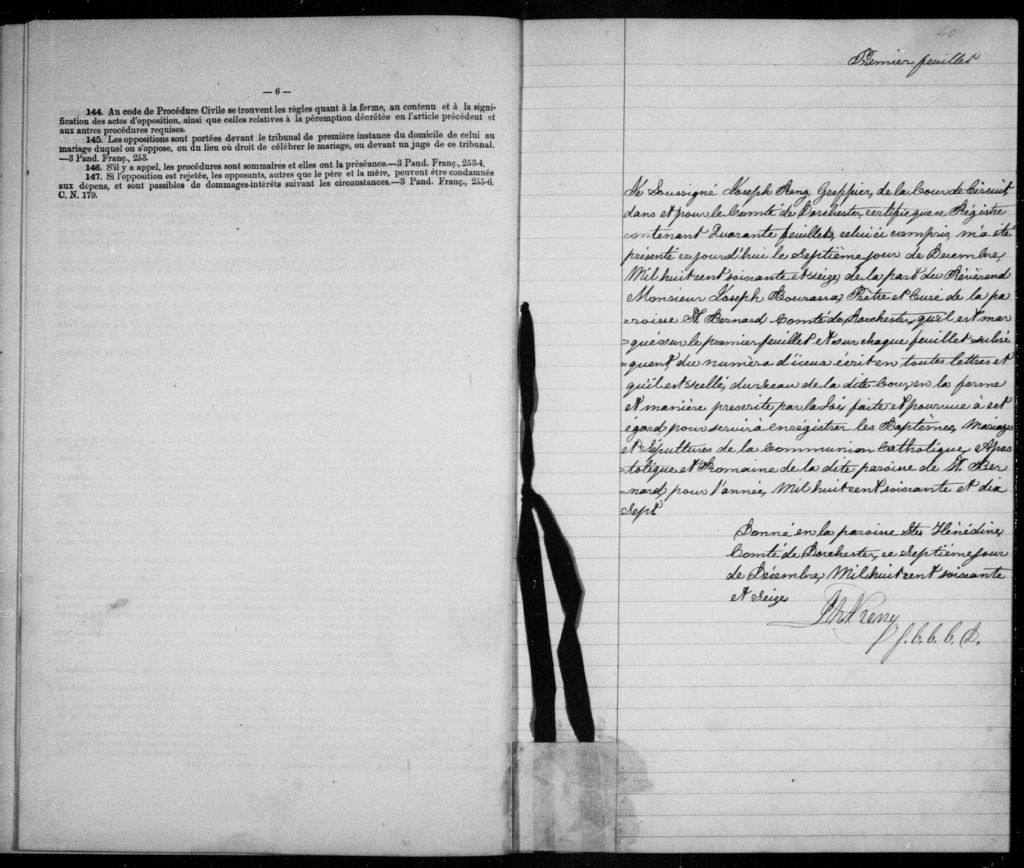 — 6 —
144. Au code de Procédure Civile se trouvent les règles quant à la forme, au contenu et à la signi-
fication des actes d'opposition, ainsi que celles relatives à la péremption décrétée en l'article précédent et
aux autres procédures requises.
145. Les oppositions sont portées devant le tribunal de première instance du domicile de celui au
mariage duquel on s'oppose, ou du lieu où droit de célébrer le mariage, ou devant un juge de ce tribunal.
—3 Pand. Franç., 253.
146. S'il y a appel, les procédures sont sommaires et elles ont la préséance.—3 Pand. Franç., 253-4.
147. Si l'opposition est rejetée, les opposants, autres que le père et la mère, peuvent être condamnés
aux dépens, et sont passibles de dommages-intérêts suivant les circonstances.—3 Pand. Franç., 255-6.
C. N. 179.
40
Premier feuillet
Je Soussigné Joseph Reny Greffier, de la Cour de Circuit
dans et pour le Comté de Dorchester, certifie que ce Régistre
contenant Quarante feuillets, celui ci compris, m'a été
présenté ce jourd'hui le Septième jour de Decembre,
Mil huit cent soixante et seize, de la part du Révérend
Monsieur Joseph Bourassa, Prêtre et Curé de la pa
=roisse St. Bernard Comté de Dorchester, qu'il est mar
=qué sur le premier feuillet et sur chaque feuillet subsé
=quent du numèro d'iceux écrit en toutes lettres et
qu'il est scellé, du sceau de la dite Cour, en la forme
et manière prescrite par la Loi, faite et pourvue à cet
égard pour servir à enrégistrer les Baptèmes, Mariages
et Sépultures de la Communion Catholique, Apos
=tolique et Romaine de la dite paroisse de St. Ber
=nard pour l'année, Mil huit cent soixante et dix
Sept
Donné en la paroisse Ste Hénédine,
Comté de Dorchester, ce Septième jour
de Décembre, Mil huit cent soixante
et seize
Jh. Reny
G. C. C. C. D.